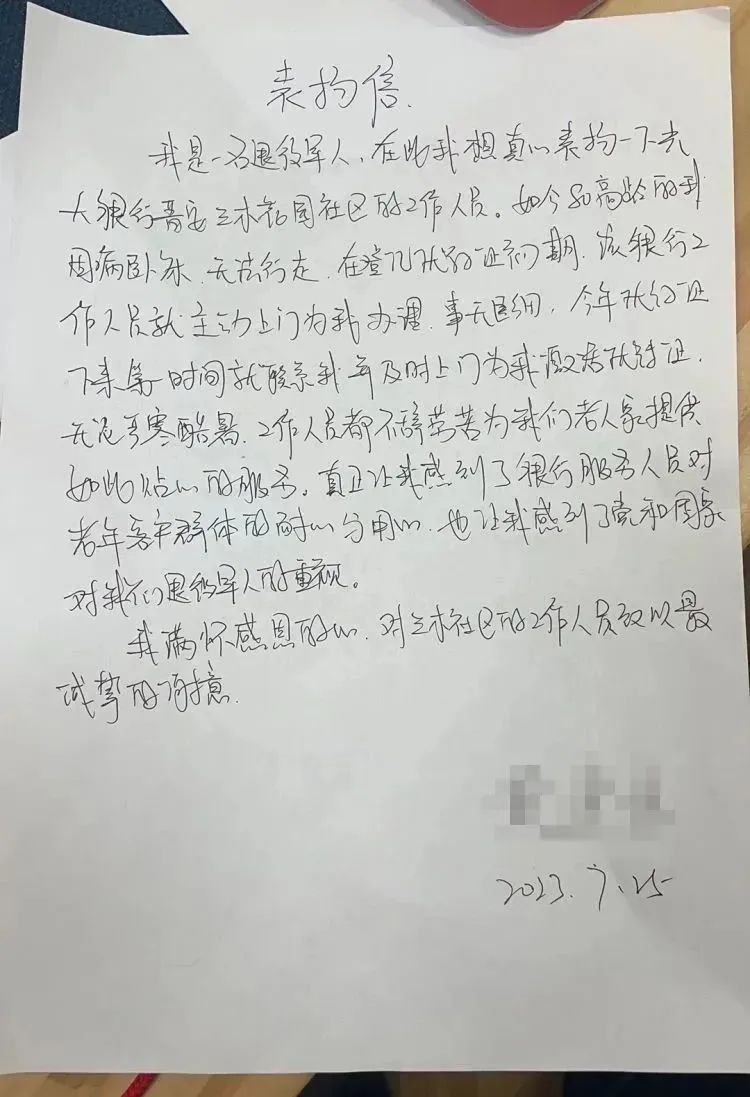 表扬信.
我是一名退役军人，在此我想真心表扬一下光
大银行普安三林苑园社区的工作人员。如今80高龄的我
因病卧床.无法行走.在登记优待证初期.该银行工
作人员就主动上门为我办理.事无巨细.今年优待证
下来第一时间就联系我并及时上门为我激活优待证.
无论严寒酷暑.工作人员都不辞劳苦为我们老人家提供
如此贴心的服务。真正让我感到了银行服务人员对
老年客户群体的耐心与用心.也让我感到了党和国家
对我们退役军人的重视。
我满怀感恩的心.对三林社区的工作人员致以最
诚挚的谢意.
2023.7.25